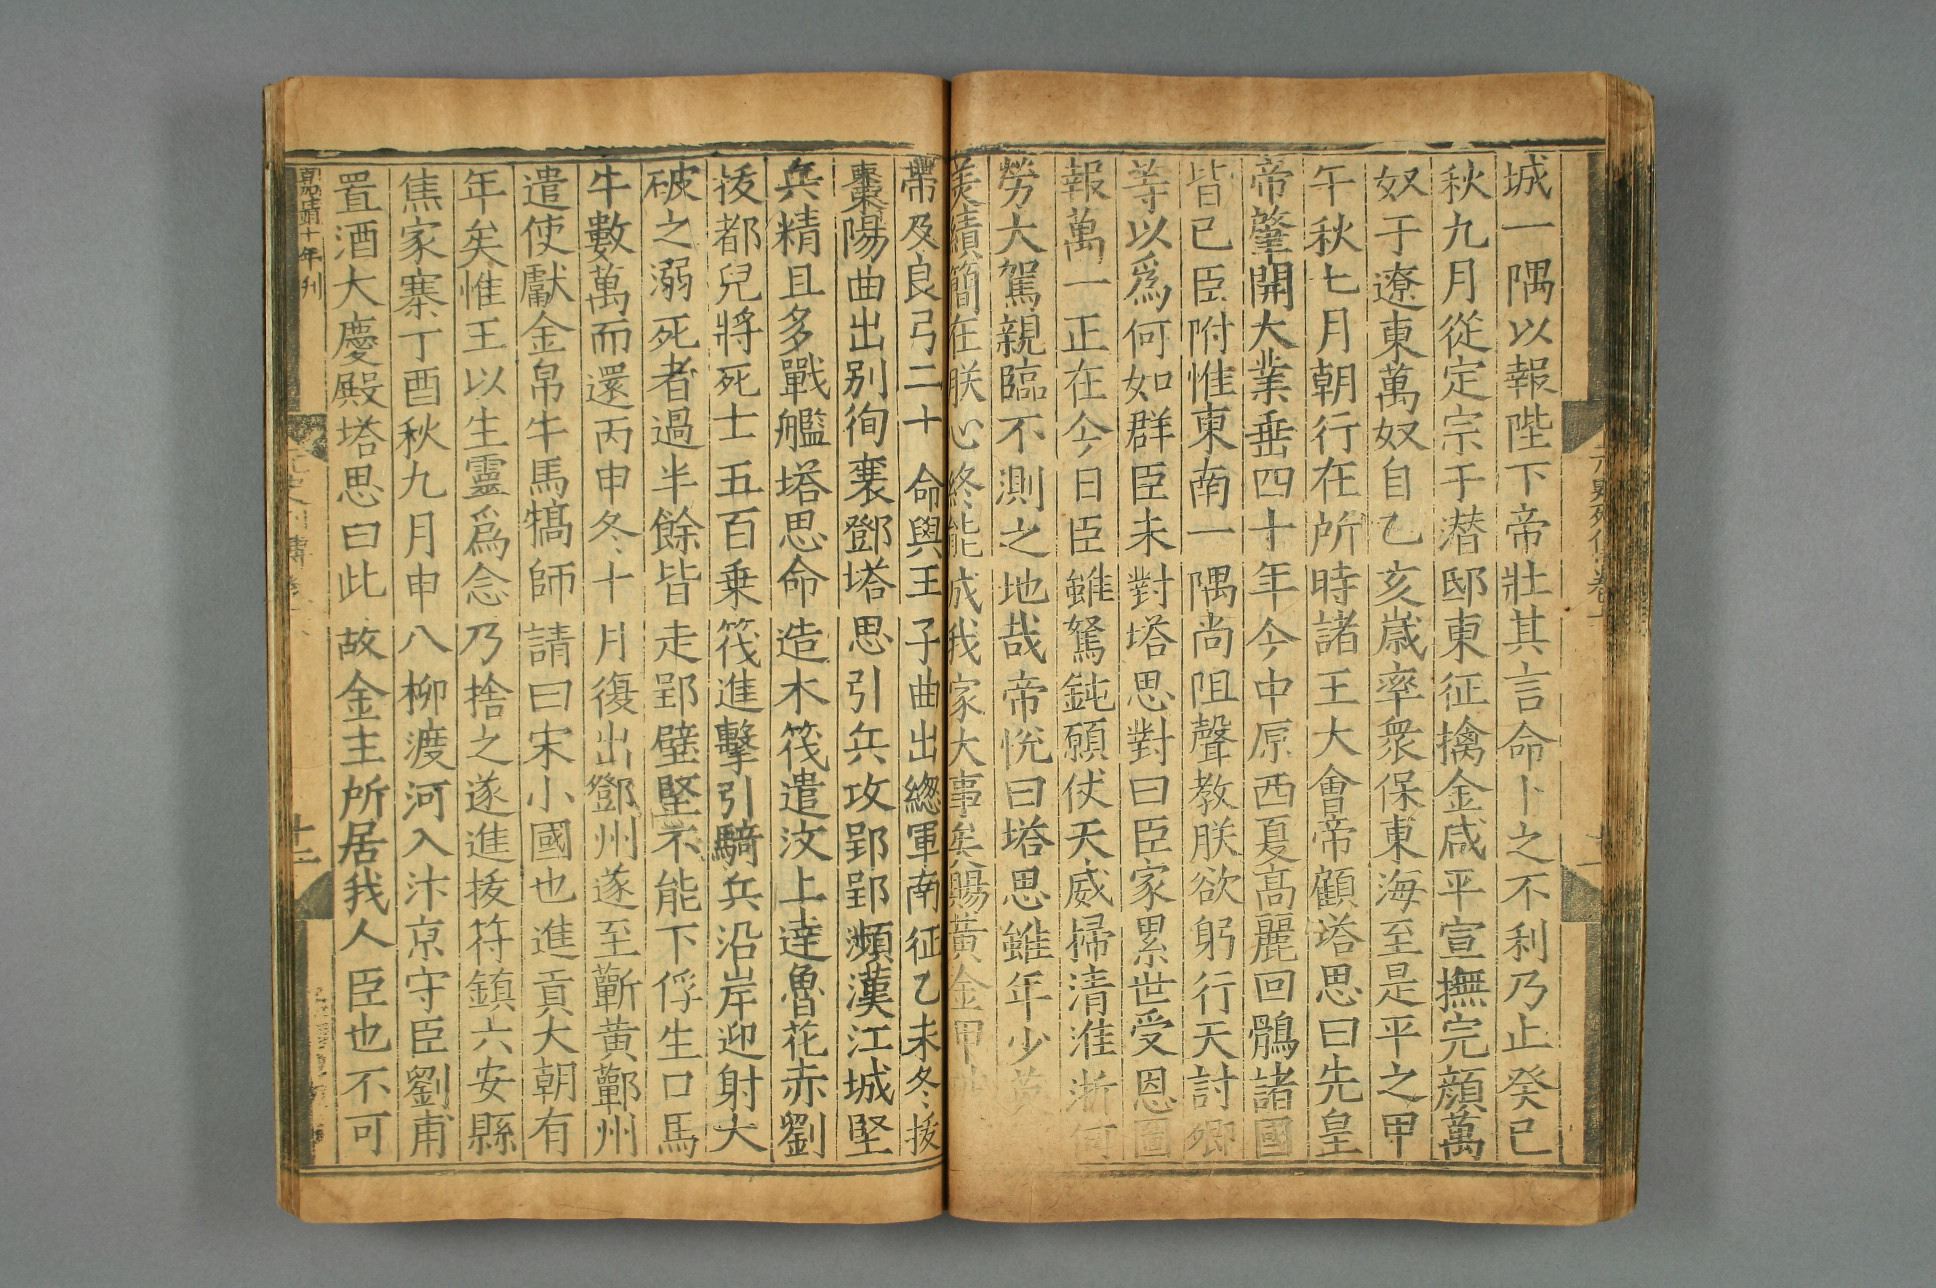 城一隅以報陛下帝壯其言命卜之不利乃止癸巳
秋九月從定宗于潜邸東征擒金咸平宣撫完顔萬
奴于遼東萬奴自乙亥嵗率衆保東海至是平之甲
午秋七月朝行在所時諸王大會帝顧塔思曰先皇
帝肇開大業垂四十年今中原西夏高麗回鶻諸國
皆已臣附惟東南一隅尚阻聲教朕欲躬行天討卿
等以爲何如群臣未對塔思對曰臣家累世受恩圖
報萬一正在今日臣雖駑鈍願仗天威掃清淮浙何
勞大駕親臨不測之地哉帝恱曰塔思雖年少英
美績簡在朕心終能成我家大事矣賜黄金甲
帶及良弓二十命與王子曲出緫軍南征乙未冬拔
棗陽曲出别徇襄鄧塔思引兵攻郢郢瀕漢江城堅
兵精且多戰艦塔思命造木筏遣汶上逹魯花赤劉
拔都兒將死士五百乗筏進擊引騎兵沿岸迎射大
破之溺死者過半餘皆走郢壁堅不能下俘生口馬
牛數萬而還丙申冬十月復出鄧州遂至蘄黄蘄州
遣使獻金帛牛馬犒師請曰宋小國也進貢大朝有
年矣惟王以生靈爲念乃捨之遂進拔符鎮六安縣
焦家寨丁酉秋九月申八柳渡河入汴京守臣劉甫
置酒大慶殿塔思曰此故金主所居我人臣也不可
嘉靖十年刋
元史列傳卷
十二